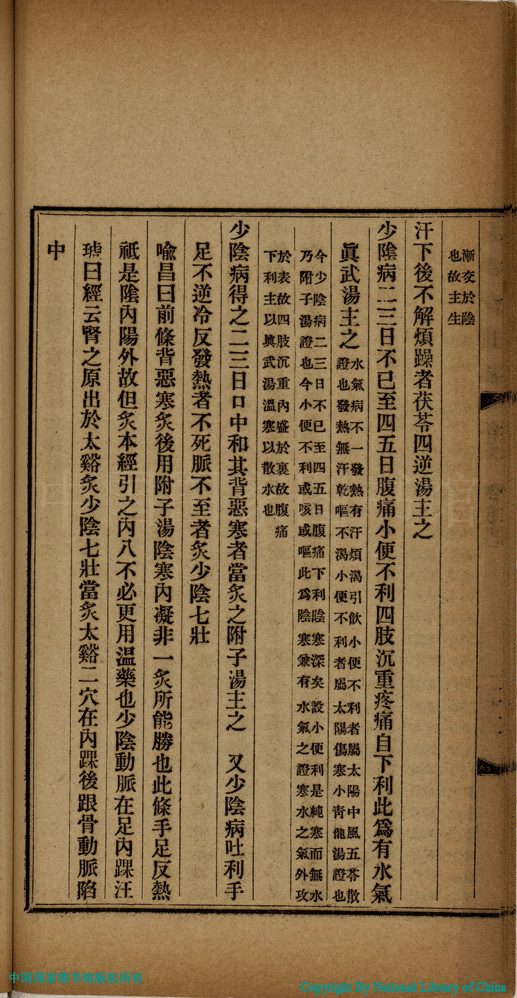 漸交於陰
也故主生
汗下後不解煩躁者茯苓四逆湯主之
少陰病二三日不已至四五日腹痛小便不利四肢沉重疼痛自下利此爲有水氣
眞武湯主之
水氣病不一發熱有汗煩渴引飲小便不利者屬太陽中風五苓散
證也發熱無汗乾嘔不渴小便不利者屬太陽傷寒小青龍湯證也
今少陰病二三日不已至四五日腹痛下利陰寒深矣設小便利是純寒而無水
乃附子湯證也今小便不利或咳或嘔此爲陰寒兼有水氣之證寒水之氣外攻
於表故四肢沉重內盛於裏故腹痛
下利主以眞武湯溫寒以散水也
少陰病得之二三日口中和其背惡寒者當炙之附子湯主之 又少陰病吐利手
足不逆冷反發熱者不死脈不至者炙少陰七壯
喩昌曰前條背惡寒炙後用附子湯陰寒內凝非一炙所能勝也此條手足反熱
祇是陰內陽外故但炙本經引之內八不必更用温藥也少陰動脈在足內踝汪
琥曰經云腎之原出於太谿炙少陰七壯當炙太谿二穴在內踝後跟骨動脈陷
中
中国国家图书馆版权所有
Copyright By National Library of China